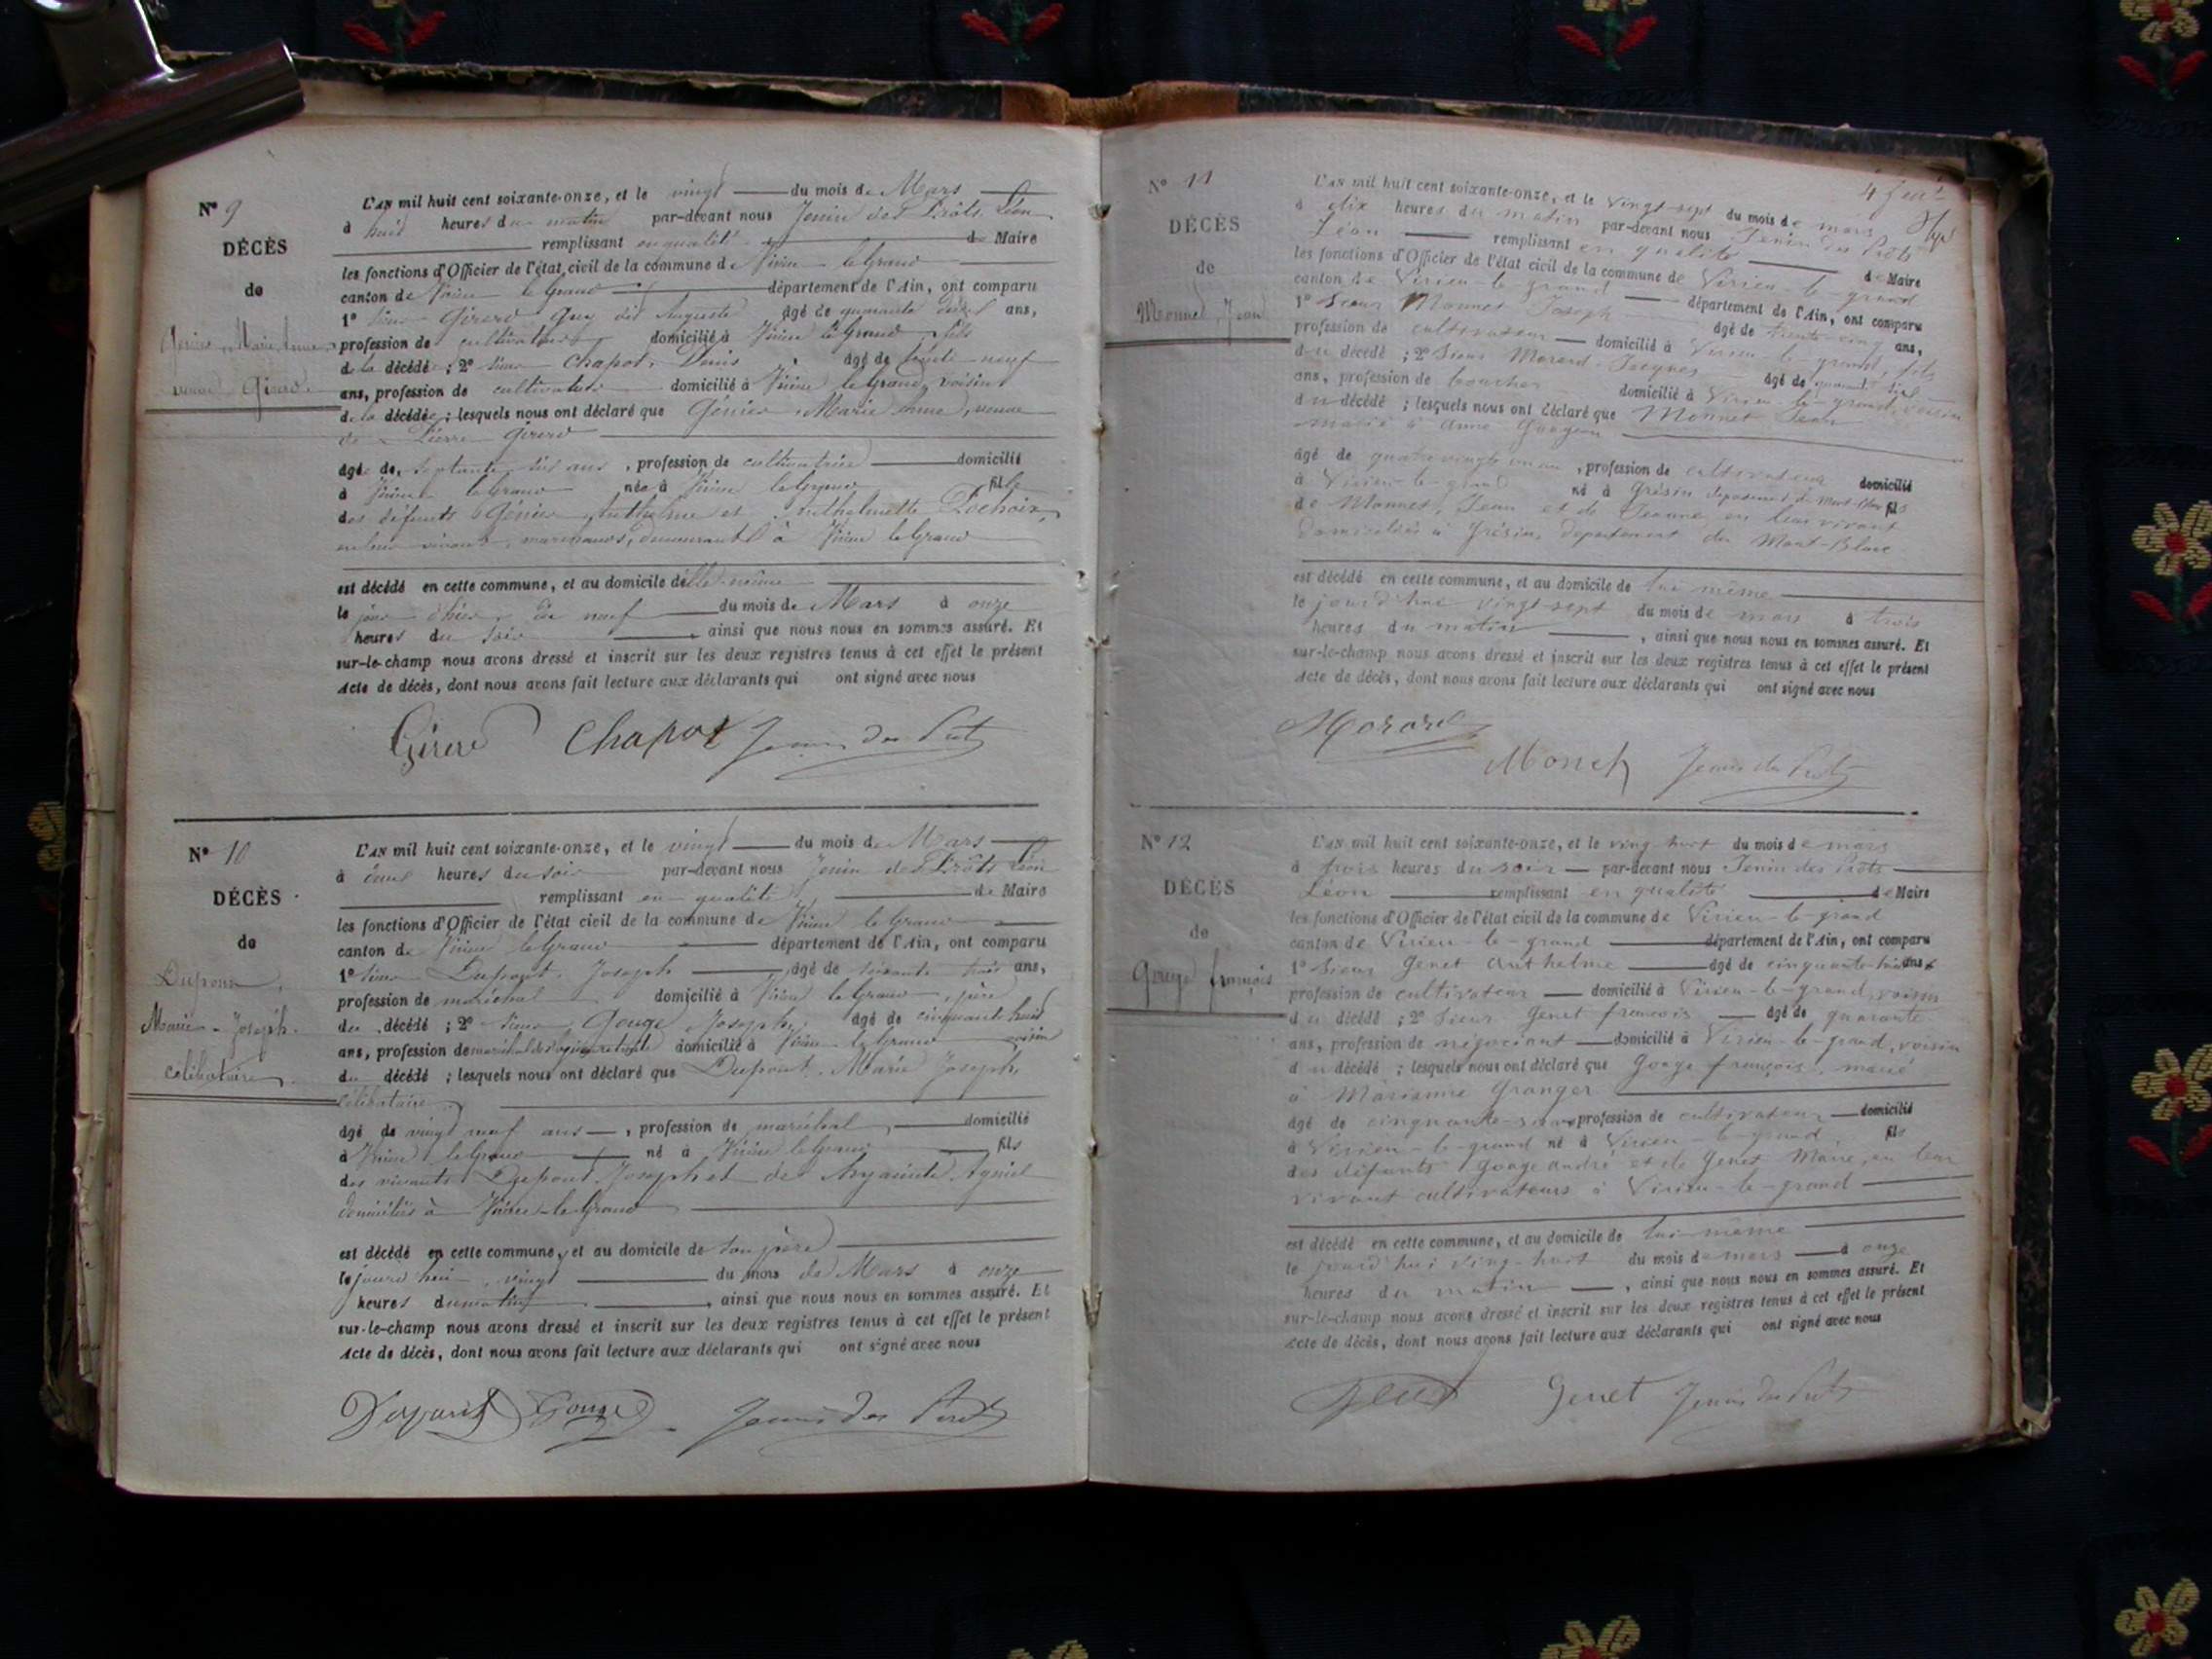 N° 9
DÉCÈS
de
Génier, Marie Anne,
veuve Girerd.
L'AN mil huit cent soixante-onze, et le vingt du mois de Mars
à huit heures du matin par-devant nous Jenin des Prôts, Léon
remplissant en qualité de Maire
les fonctions d'Officier de l'état civil de la commune de Virieu le Grand
canton de Virieu le Grand département de l'Ain, ont comparu
1° Sieur Girerd Guy dit Auguste âgé de quarante ans,
profession de cultivateur domicilié à Virieu le Grand, fils
de la décédée; 2° Sieur Chapot, Denis âgé de neuf
ans, profession de cultivateur domicilié à Virieu le Grand, voisin
de la décédée; lesquels nous ont déclaré que Génier, Marie Anne, veuve
de Pierre Girerd
âgé de septante six ans, profession de cultivatrice domicilié
à Virieu le Grand née à Virieu le Grand fille
des défunts Génier, Anthelme et Anthelmette Pochoix,
en leur vivant, marchands, demeurant à Virieu le Grand
est décédé en cette commune, et au domicile d'elle-même
le jour d'hier, dix neuf du mois de Mars à onze
heures du soir, ainsi que nous nous en sommes assuré. Et
sur-le-champ nous avons dressé et inscrit sur les deux registres tenus à cet effet le présent
Acte de décès, dont nous avons fait lecture aux déclarants qui ont signé avec nous
Girerd Chapot Jenin des Prôts
N° 10
DÉCÈS
de
Dupont,
Marie-Joseph.
célibataire.
L'AN mil huit cent soixante-onze, et le vingt du mois de Mars
à heures du soir par-devant nous Jenin des Prôts Léon
remplissant en qualité de Maire
les fonctions d'Officier de l'état civil de la commune de Virieu le Grand
canton de Virieu le Grand département de l'Ain, ont comparu
1° Sieur Dupont, Joseph âgé de soixante trois ans,
profession de maréchal domicilié à Virieu le Grand, père
du décédé; 2° Sieur Gouge, Joseph, âgé de cinquante huit
ans, profession de maréchal des logis en retraite domicilié à Virieu le Grand voisin
du décédé; lesquels nous ont déclaré que Dupont, Marie Joseph,
célibataire,
âgé de vingt neuf ans, profession de maréchal, domicilié
à Virieu le Grand né à Virieu le Grand fils
des vivants Dupont Joseph et de Hyacinte
domiciliés à Virieu-le-Grand
est décédé en cette commune, et au domicile de son père
le jourd'hui, vingt du mois de Mars à onze
heures du matin, ainsi que nous nous en sommes assuré. Et
sur-le-champ nous avons dressé et inscrit sur les deux registres tenus à cet effet le présent
Acte de décès, dont nous avons fait lecture aux déclarants qui ont signé avec nous
Dupont Gouge Jenin des Prôts
N° 11
DÉCÈS
de
Monnet, Jean
L'AN mil huit cent soixante-onze, et le vingt-sept du mois de mars
à dix heures du matin par-devant nous Jenin des Prôts
Léon remplissant en qualité de Maire
les fonctions d'Officier de l'état civil de la commune de Virieu-le-grand
canton de Virieu-le-grand département de l'Ain, ont comparu
1° Sieur Monnet Joseph âgé de trente-cinq ans,
profession de cultivateur domicilié à Virieu-le-grand, fils
du décédé; 2° Sieur Morard Jacques âgé de quarante
ans, profession de boucher domicilié à Virieu-le-grand, voisin
du décédé; lesquels nous ont déclaré que Monnet Jean
marié à Anne
âgé de quatre vingts, profession de cultivateur domicilié
à Virieu-le-grand né à Grésin département du Mont-Blanc fils
de Monnet, Jean et de Jeanne, en leur vivant
domiciliés à Grésin, département du Mont-Blanc
est décédé en cette commune, et au domicile de lui même
le jourd'hui vingt-sept du mois de mars à trois
heures du matin, ainsi que nous nous en sommes assuré. Et
sur-le-champ nous avons dressé et inscrit sur les deux registres tenus à cet effet le présent
Acte de décès, dont nous avons fait lecture aux déclarants qui ont signé avec nous
Morard
Monet Jenin des Prôts
N° 12
DÉCÈS
de
Gouge françois
L'AN mil huit cent soixante-onze, et le ving huit du mois de mars
à trois heures du soir par-devant nous Jenin des Prôts
Léon remplissant en qualité de Maire
les fonctions d'Officier de l'état civil de la commune de Virieu-le-grand
canton de Virieu-le-grand département de l'Ain, ont comparu
1° Sieur Genet Anthelme âgé de cinquante-huit ans,
profession de cultivateur domicilié à Virieu-le-grand, voisin
du décédé; 2° Sieur Genet francois âgé de quarante
ans, profession de négociant domicilié à Virieu-le-grand, voisin
du décédé; lesquels nous ont déclaré que Gouge françois, marié
à Marianne Granger
âgé de cinquante profession de cultivateur domicilié
à Virieu-le-grand né à Virieu-le-grand, fils
des défunts Gouge andré et de Genet Marie, en leur
vivant cultivateurs à Virieu-le-grand
est décédé en cette commune, et au domicile de lui même
le jourd'hui ving-huit du mois de mars à onze
heures du matin, ainsi que nous nous en sommes assuré. Et
sur-le-champ nous avons dressé et inscrit sur les deux registres tenus à cet effet le présent
Acte de décès, dont nous avons fait lecture aux déclarants qui ont signé avec nous
Genet Jenin des Prôts